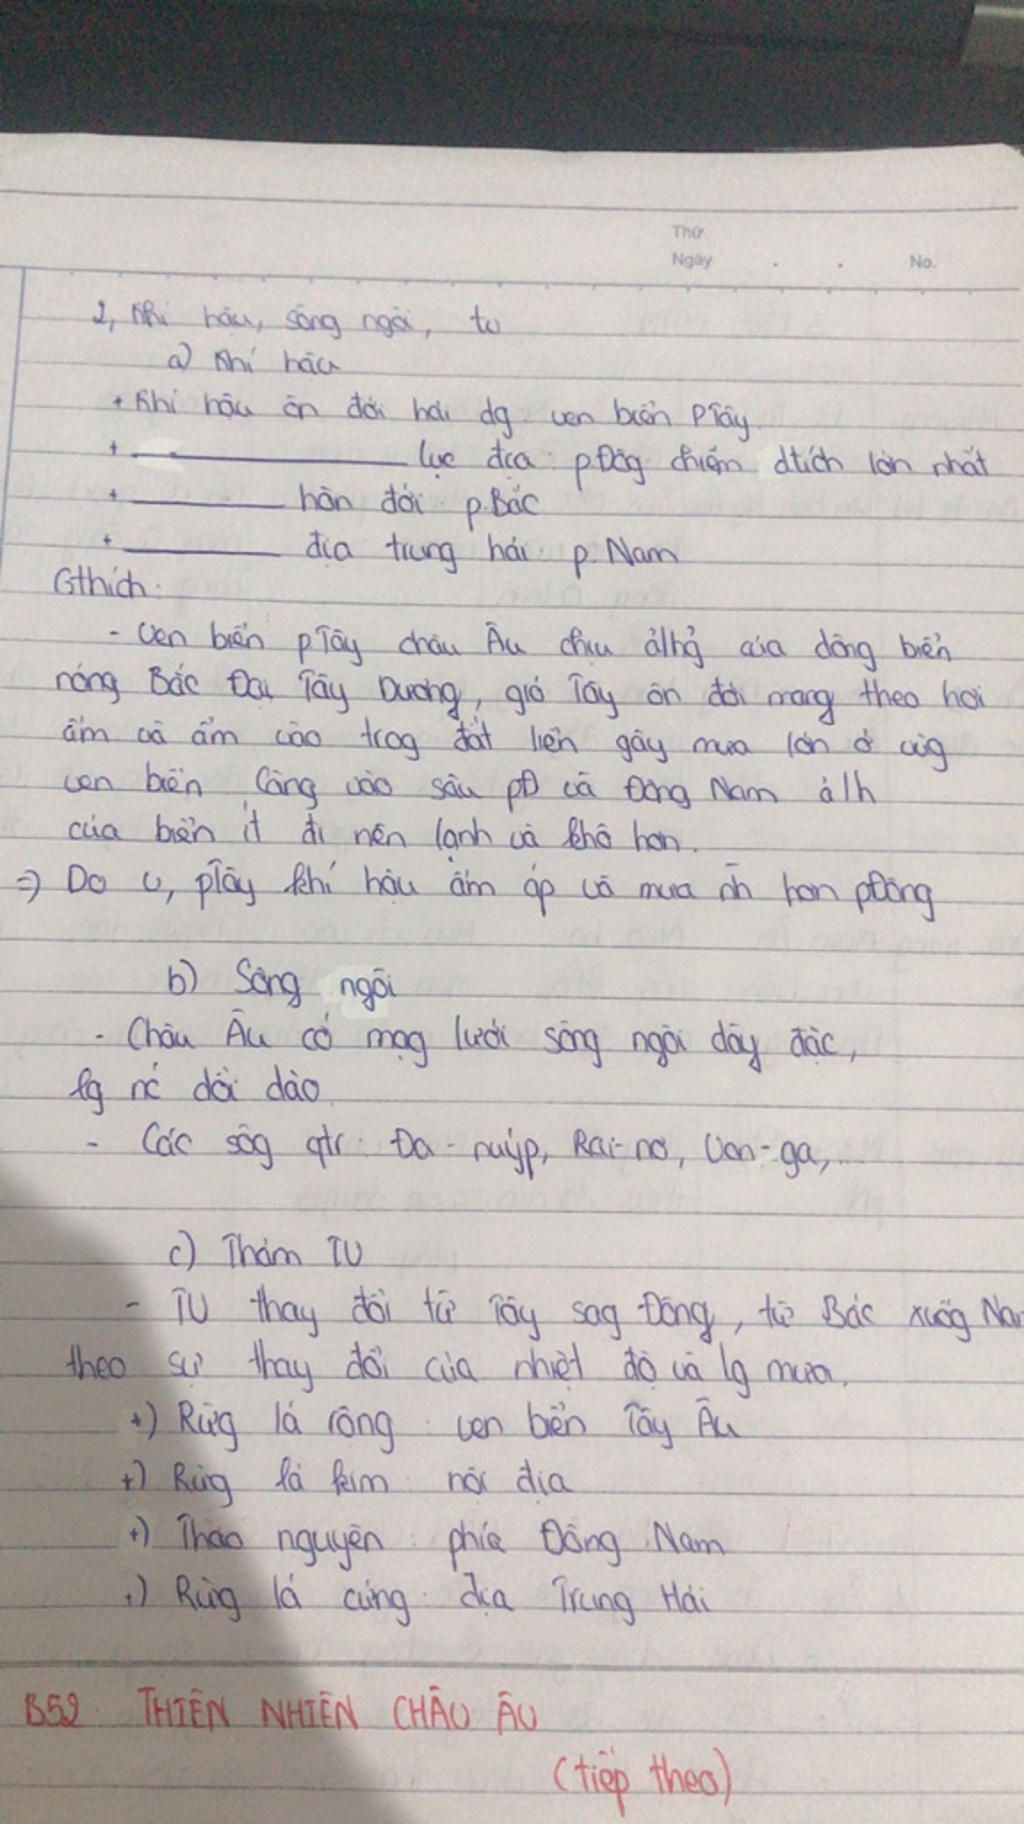 Thứ
Ngày . . No.
2, Khí hậu, sông ngòi, tv
a) Khí hậu
+ Khí hậu ôn đới hải dg ven biển PTây
+ ——— lục địa pĐôg chiếm dtích lớn nhất
+ ——— hàn đới p.Bắc
+ ——— địa trung hải p. Nam
Gthích:
- Ven biển pTây châu Âu chịu ả/hg của dòng biển
nóng Bắc Đại Tây Dương, gió Tây ôn đới mang theo hơi
ấm và ẩm vào trog đất liền gây mưa lớn ở vùg
ven biển Càng vào sâu pĐ và Đông Nam ả/h
của biển ít đi nên lạnh và khô hơn.
=> Do v, pTây khí hậu ấm áp và mưa nh hơn pĐông
b) Sông ngòi
- Châu Âu có mạg lưới sông ngòi dày đặc,
lg nc dồi dào
- Các sôg qtr: Đa-nuýp, Rai-nơ, Von-ga,...
c) Thảm TV
- TV thay đổi từ Tây sag Đông, từ Bắc xuốg Na
theo sự thay đổi của nhiệt độ và lg mưa.
+) Rừg lá rộng: ven biển Tây Âu
+) Rừg lá kim: nội địa
+) Thảo nguyên: phía Đông Nam
+) Rừg lá cứng: địa Trung Hải
B52: THIÊN NHIÊN CHÂU ÂU
(tiếp theo)